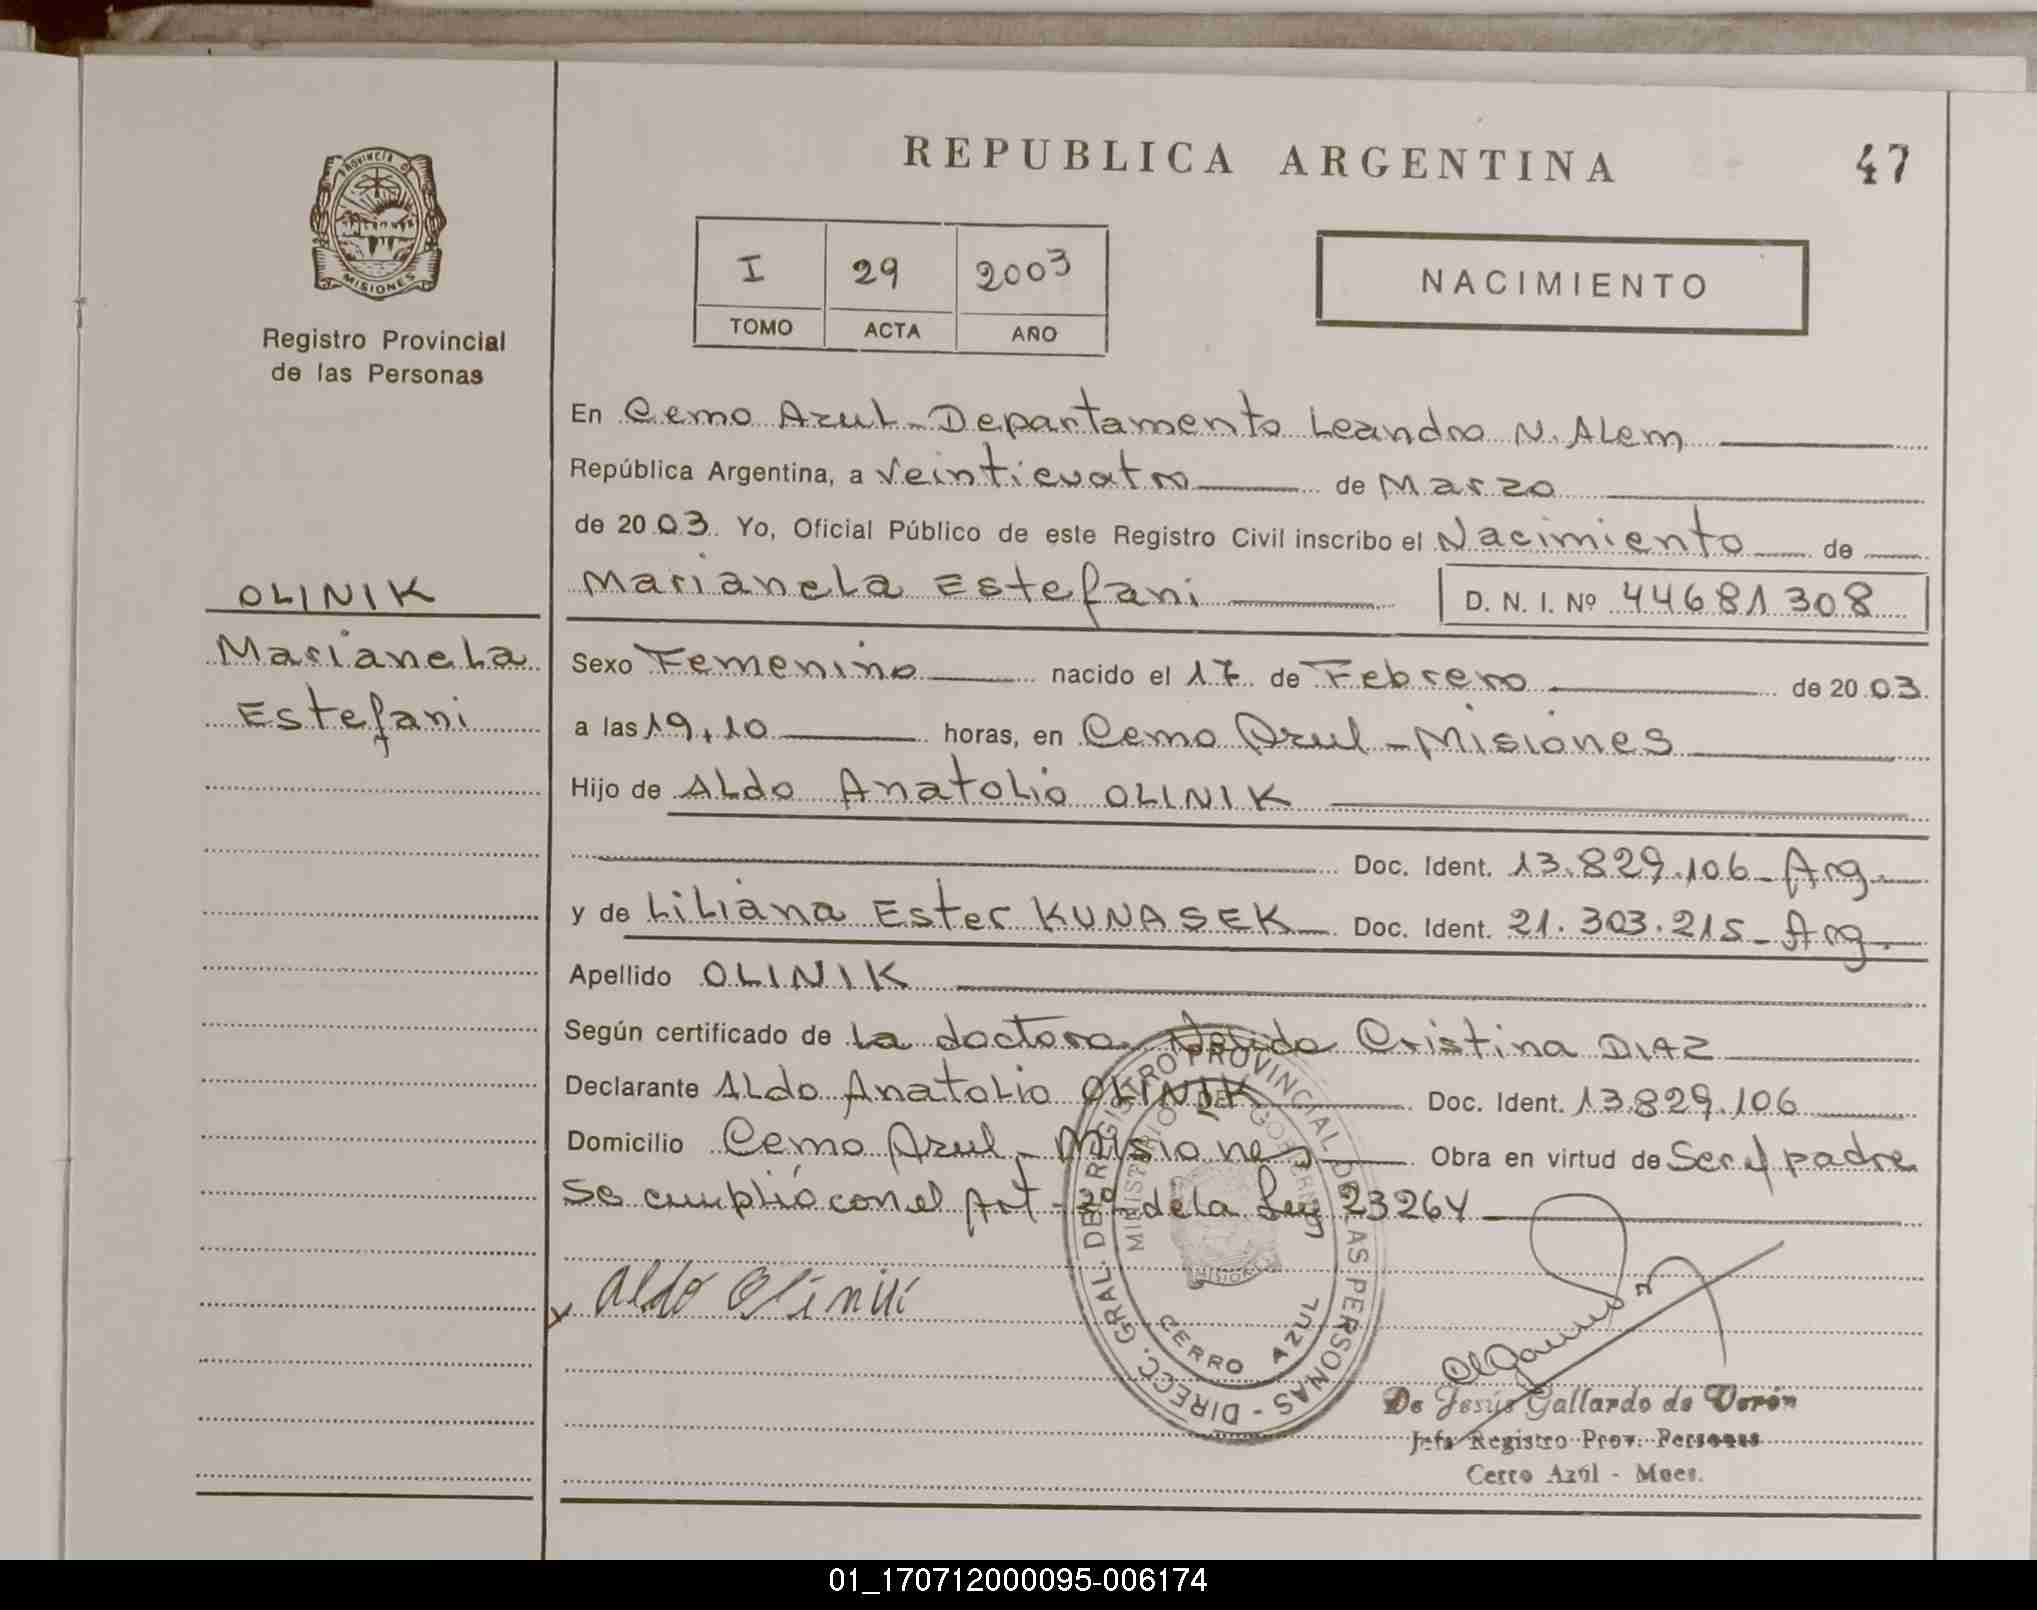 REPUBLICA ARGENTINA
47
PROVINCIA DE
MISIONES
Registro Provincial
de las Personas
I 29 2003
TOMO ACTA AÑO
NACIMIENTO
En Cerro Azul - Departamento Leandro N. Alem
República Argentina, a Veinticuatro de Marzo
de 2003. Yo, Oficial Público de este Registro Civil inscribo el Nacimiento de
Marianela Estefani D. N. I. Nº 44681308
OLINIK
Marianela
Estefani
Sexo Femenino nacido el 17 de Febrero de 2003.
a las 19,10 horas, en Cerro Azul - Misiones
Hijo de Aldo Anatolio OLINIK
Doc. Ident. 13.829.106 - Arg.
y de Liliana Ester KUNASEK Doc. Ident. 21.303.215 - Arg.
Apellido OLINIK
Según certificado de la doctora Cristina DIAZ
Declarante Aldo Anatolio OLINIK Doc. Ident. 13.829.106
Domicilio Cerro Azul - Misiones Obra en virtud de Ser el padre
Se cumplió con el Art - 2º de la Ley 23264
Aldo Olinik
DIRECC. GRAL. DEL REGISTRO PROVINCIAL DE LAS PERSONAS -
MINISTERIO DE GOBIERNO
MISIONES
CERRO AZUL
De Jesús Gallardo de Verón
Jefa Registro Prov. Personas
Cerro Azul - Mnes.
01_170712000095-006174